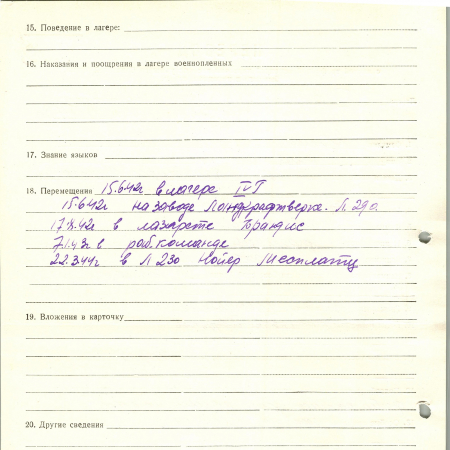 15. Поведение в лагере:
16. Наказания и поощрения в лагере военнопленных
17. Знание языков
18. Перемещения 15.6.42г в лагере IVГ
15.6.42г на заводе Л. 290.
в лазарете Брандис
7.1.43г в раб. команде
22.3.44г в Л 230 Нойер Месплатц
19. Вложения в карточку
20. Другие сведения